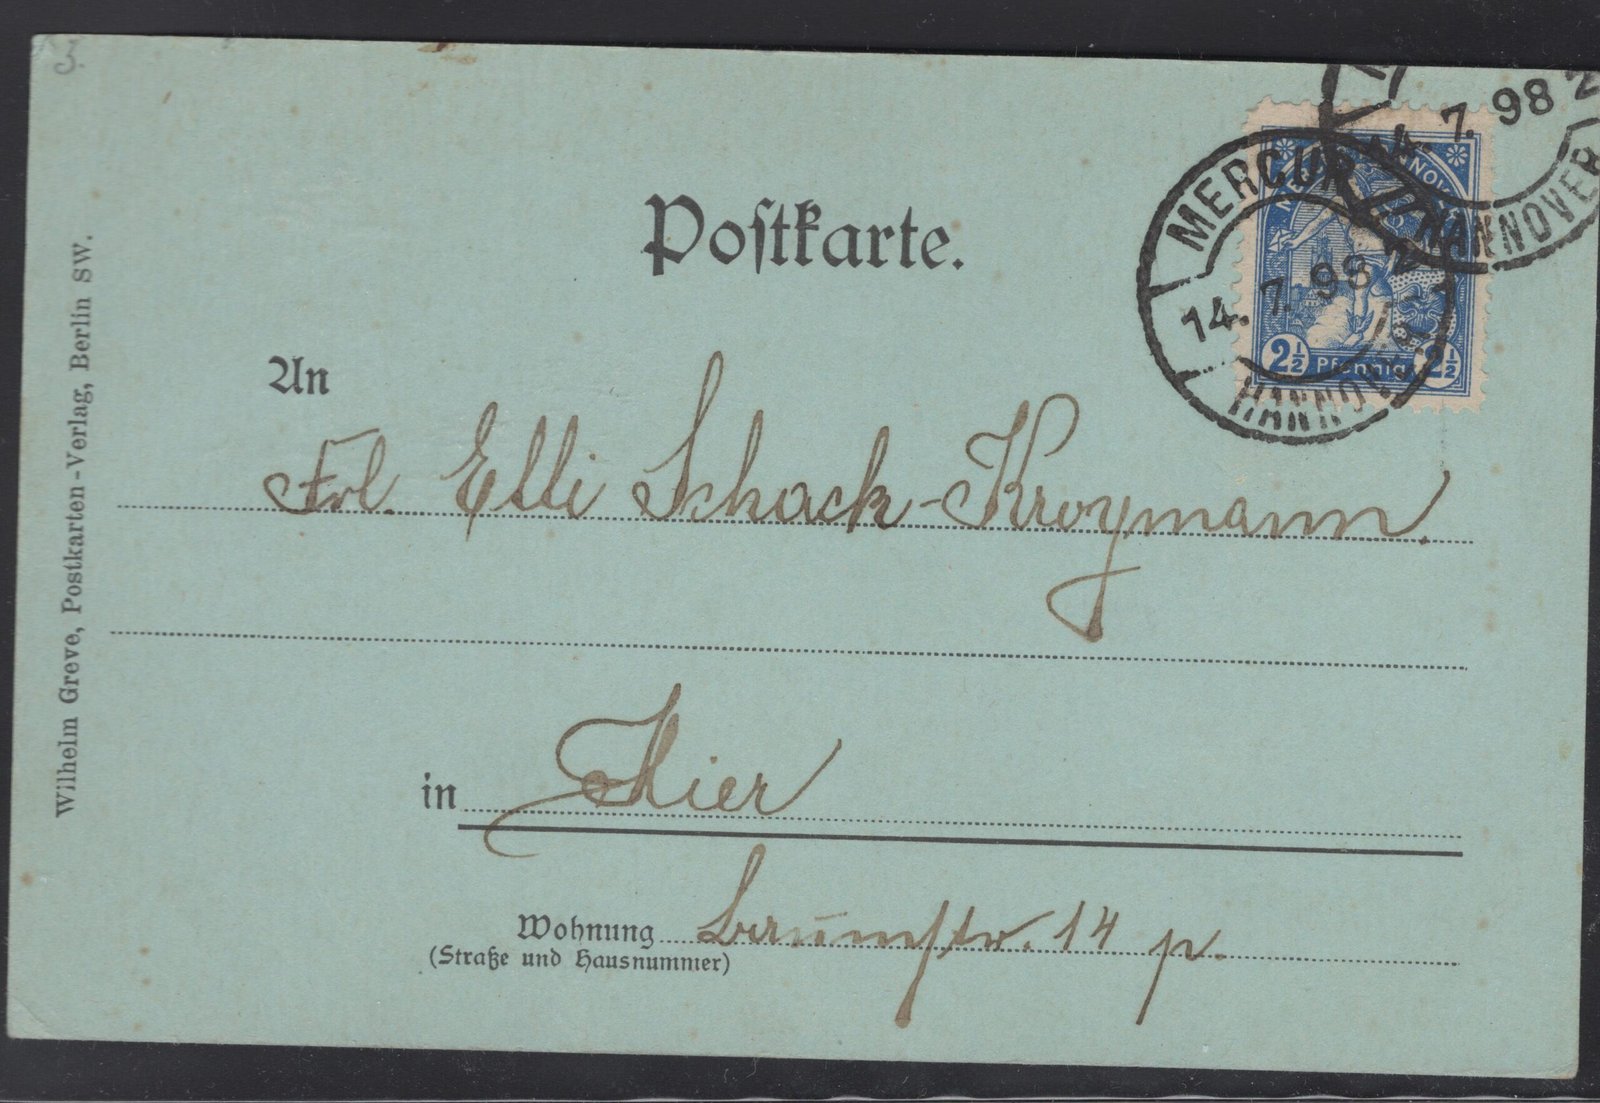 3.
14. 7. 98 2
HANNOVER
MERCUR
14. 7. 98
HANNOVER
2½ Pfennig 2½
Postkarte.
An
Frl. Elli Schack-Kroymann.
in Hier
Wohnung 14 p.
(Straße und Hausnummer)
Wilhelm Greve, Postkarten-Verlag, Berlin SW.